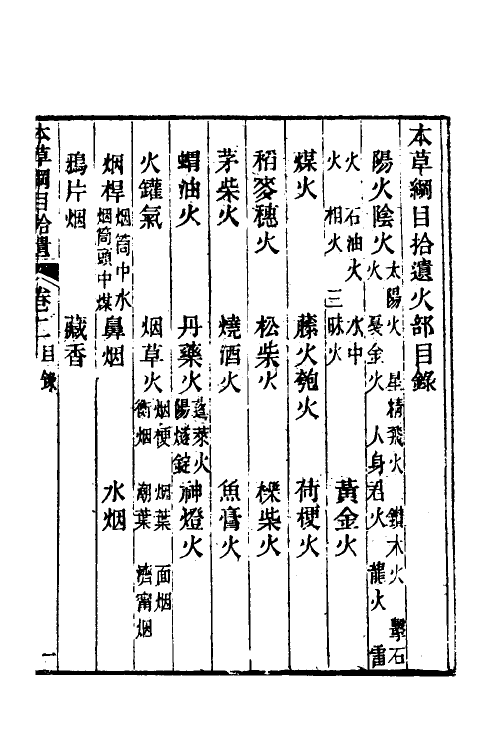 本草綱目拾遺火部目錄
陽火陰火 太陽火 星精飛火 鑽木火 擊石火 戛金火 人身君火 龍火 雷
火 石油火 水中
火 相火 三昧火 黃金火
煤火 藤火匏火 荷梗火
稻麥穗火 松柴火 櫟柴火
茅柴火 燒酒火 魚膏火
蝟油火 丹藥火 蓬萊火 陽燧錠 神燈火
火罐氣 烟草火 烟梗 烟葉 面烟 衡烟 潮葉 濟甯烟
烟桿 烟筒中水 烟筒頭中煤 鼻烟 水烟
鴉片烟 藏香
本草綱目拾遺 卷二 目錄 一